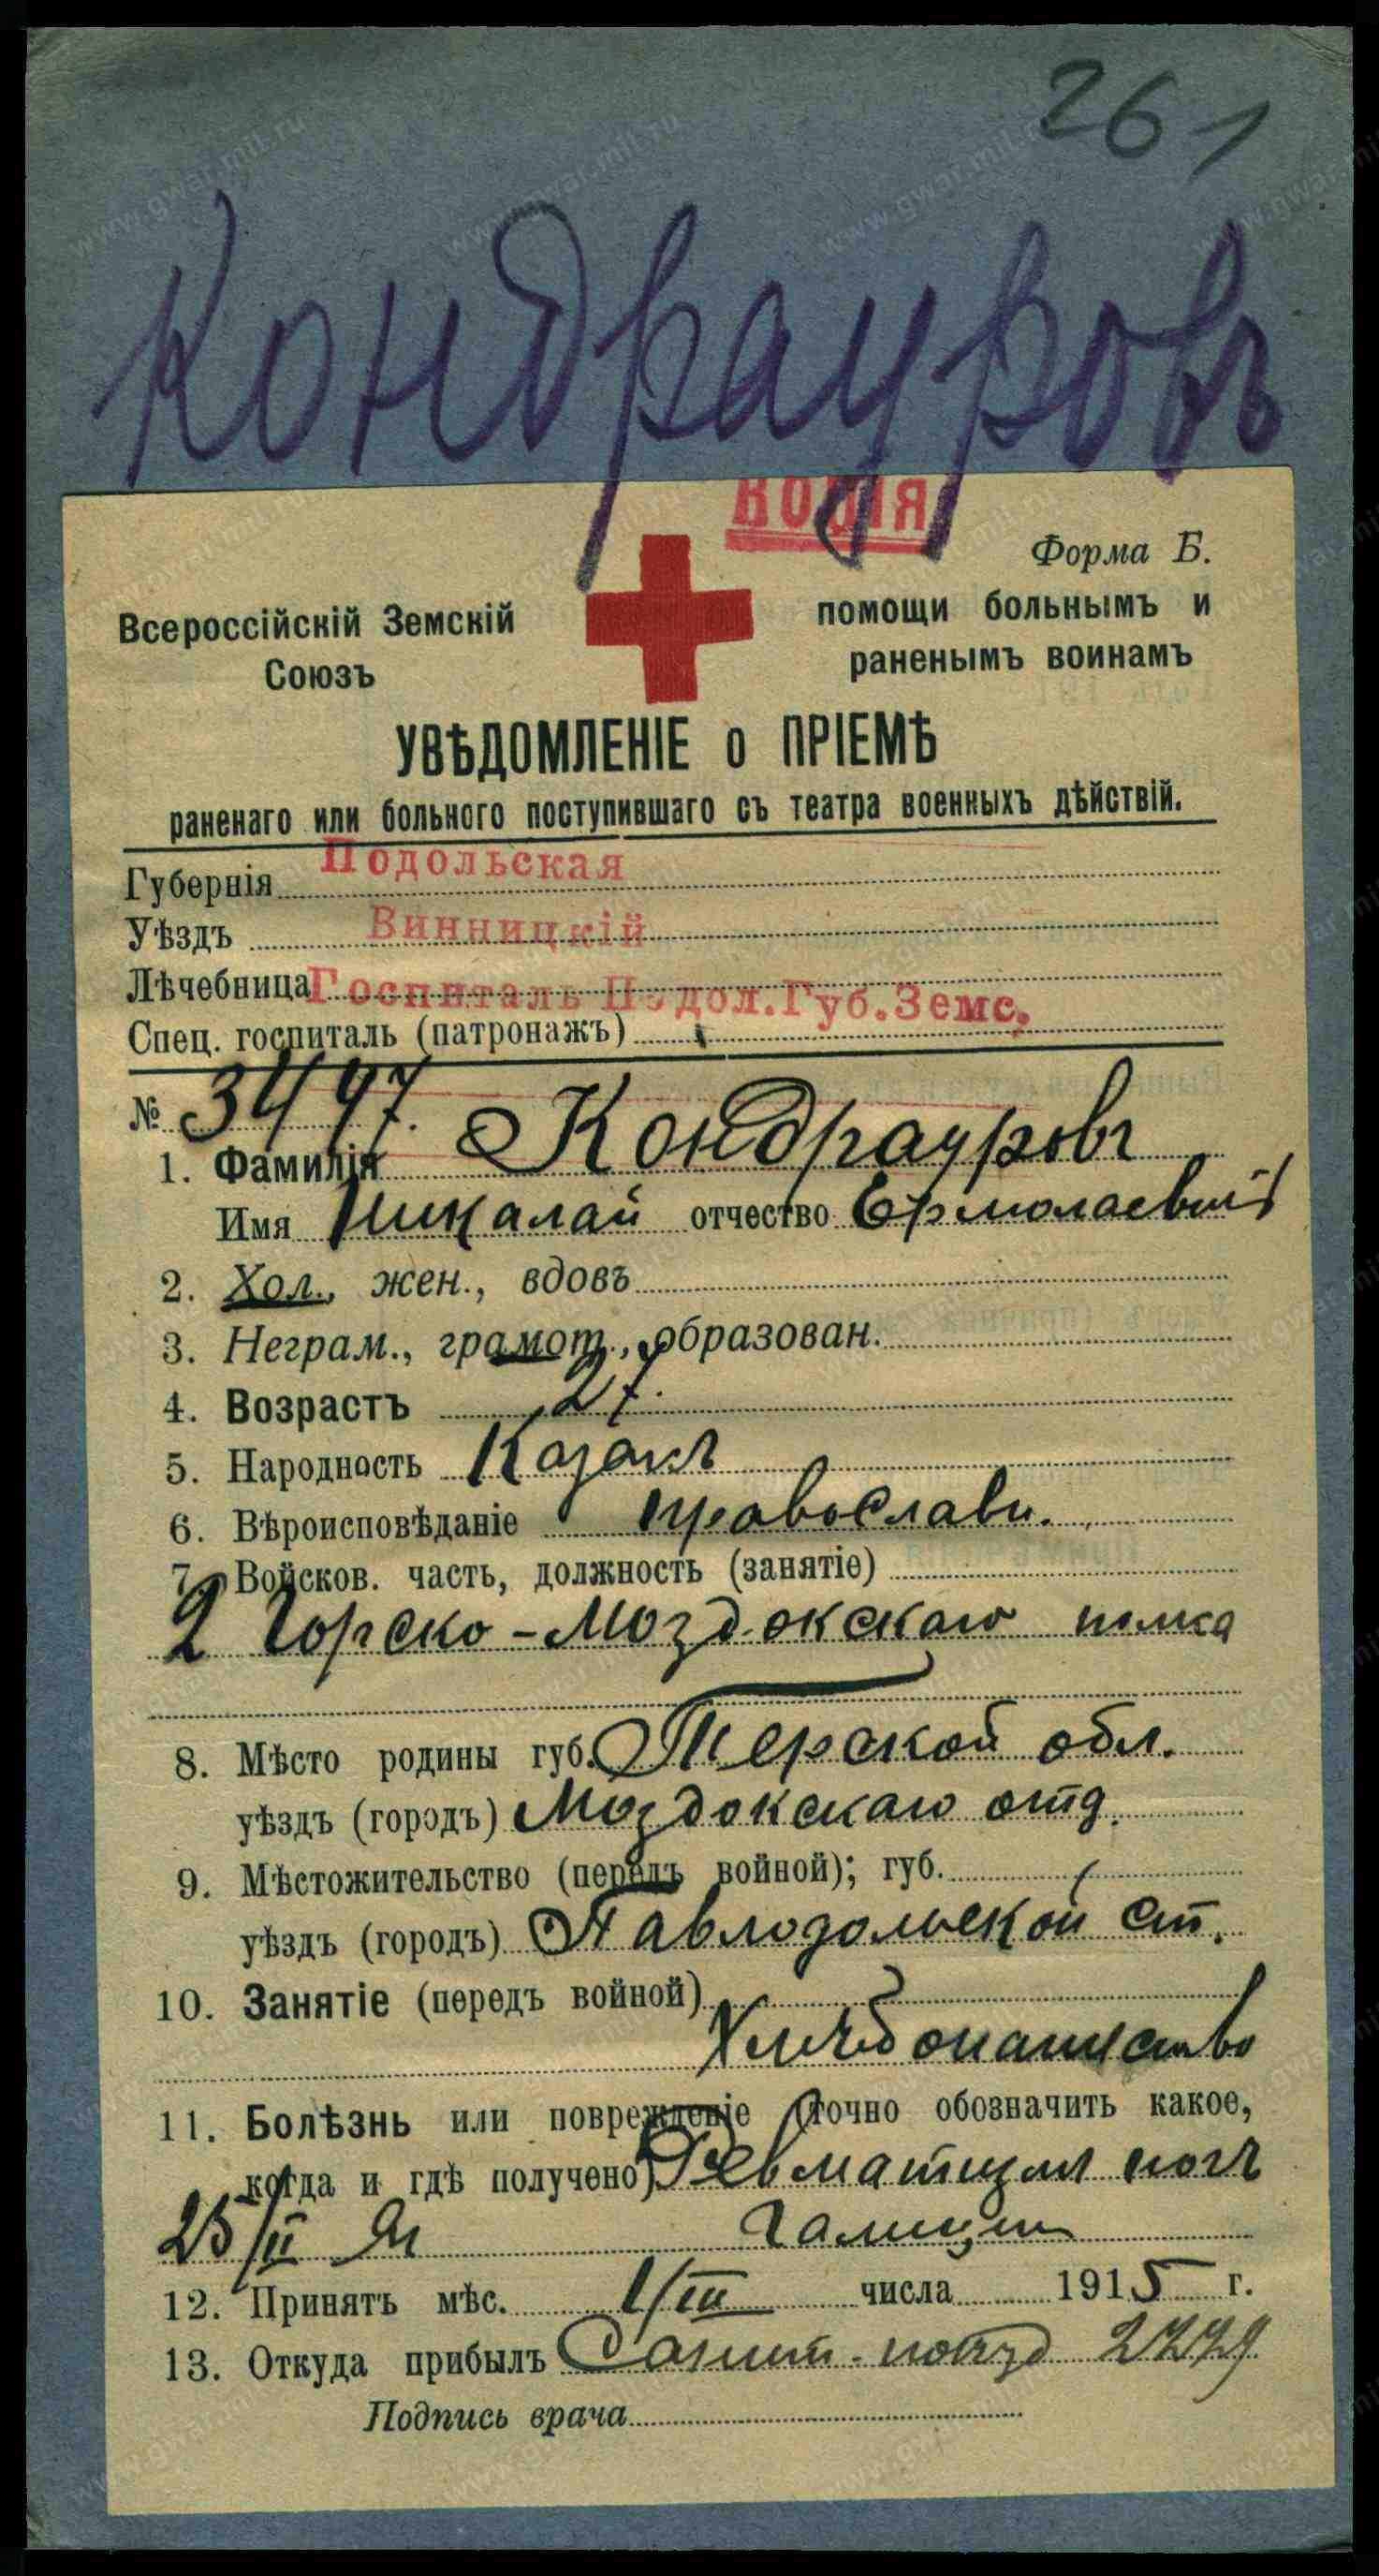 261
Кондрауровъ
Копія
Форма Б.
Всероссійскій Земскій
Союзъ
помощи больнымъ и
раненымъ воинамъ
УВѢДОМЛЕНІЕ о ПРІЕМѢ
раненаго или больного поступившаго съ театра военныхъ дѣйствій.
Губернія Подольская
Уѣздъ Винницкій
Лѣчебница Госпиталь Подол.Губ.Земс.
Спец. госпиталь (патронажъ)
№ 3497.
1. Фамилія Кондрауровъ
Имя Николай отчество Ермолаевич
2. Хол., жен., вдовъ
3. Неграм., грамот., образован.
4. Возрастъ 27.
5. Народность Казакъ
6. Вѣроисповѣданіе православн.
7. Войсков. часть, должность (занятіе)
2 Горско-Моздокскаго полка
8. Мѣсто родины губ. Терской обл.
уѣздъ (городъ) Моздокскаго отд.
9. Мѣстожительство (передъ войной); губ.
уѣздъ (городъ) Павлодольской ст.
10. Занятіе (передъ войной)
Хлѣбопашество
11. Болѣзнь или поврежденіе (точно обозначить какое,
когда и гдѣ получено) Ревматизм ногъ
25/II Галиціи
12. Принятъ мѣс. 1/III числа 1915 г.
13. Откуда прибылъ Санит. поѣзд
Подпись врача